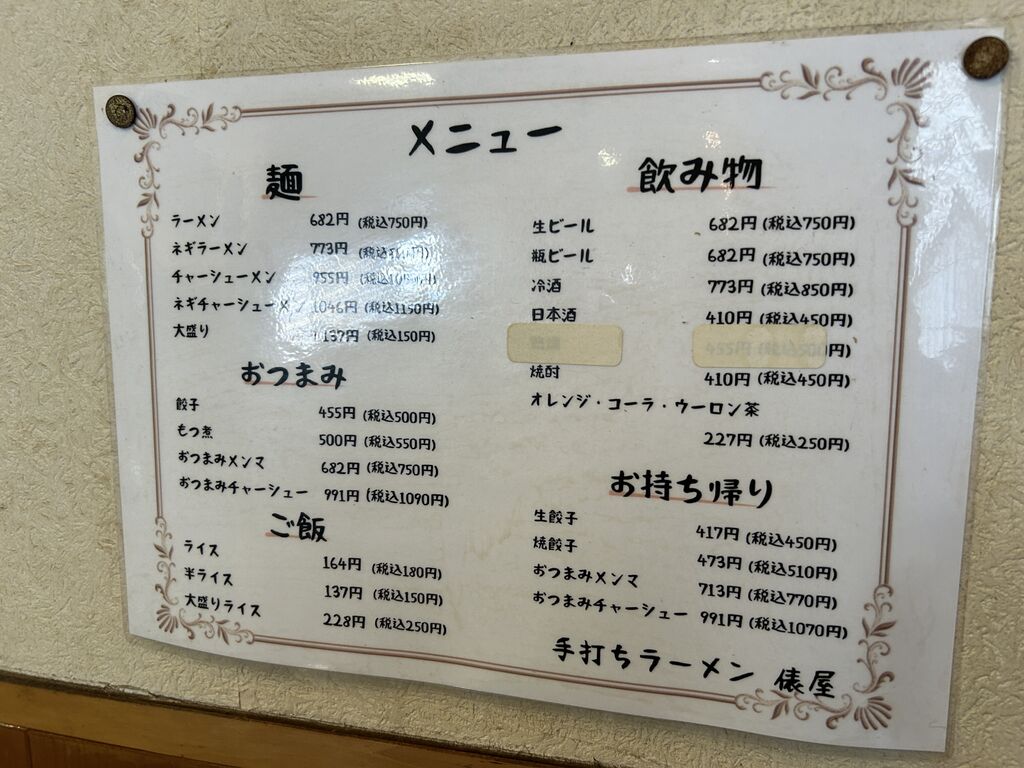 メニュー
麺
ラーメン 682円 (税込750円)
ネギラーメン 773円 (税込
チャーシューメン 955円
ネギチャーシューメン 1046円 (税込1150円)
大盛り 137円 (税込150円)
おつまみ
餃子 455円 (税込500円)
もつ煮 500円 (税込550円)
おつまみメンマ 682円 (税込750円)
おつまみチャーシュー 991円 (税込1090円)
ご飯
ライス 164円 (税込180円)
半ライス 137円 (税込150円)
大盛りライス 228円 (税込250円)
飲み物
生ビール 682円 (税込750円)
瓶ビール 682円 (税込750円)
冷酒 773円 (税込850円)
日本酒 410円 (税込450円)
455円 (税込500円)
焼酎 410円 (税込450円)
オレンジ・コーラ・ウーロン茶
227円 (税込250円)
お持ち帰り
生餃子 417円 (税込450円)
焼餃子 473円 (税込510円)
おつまみメンマ 713円 (税込770円)
おつまみチャーシュー 991円 (税込1070円)
手打ちラーメン 俵屋